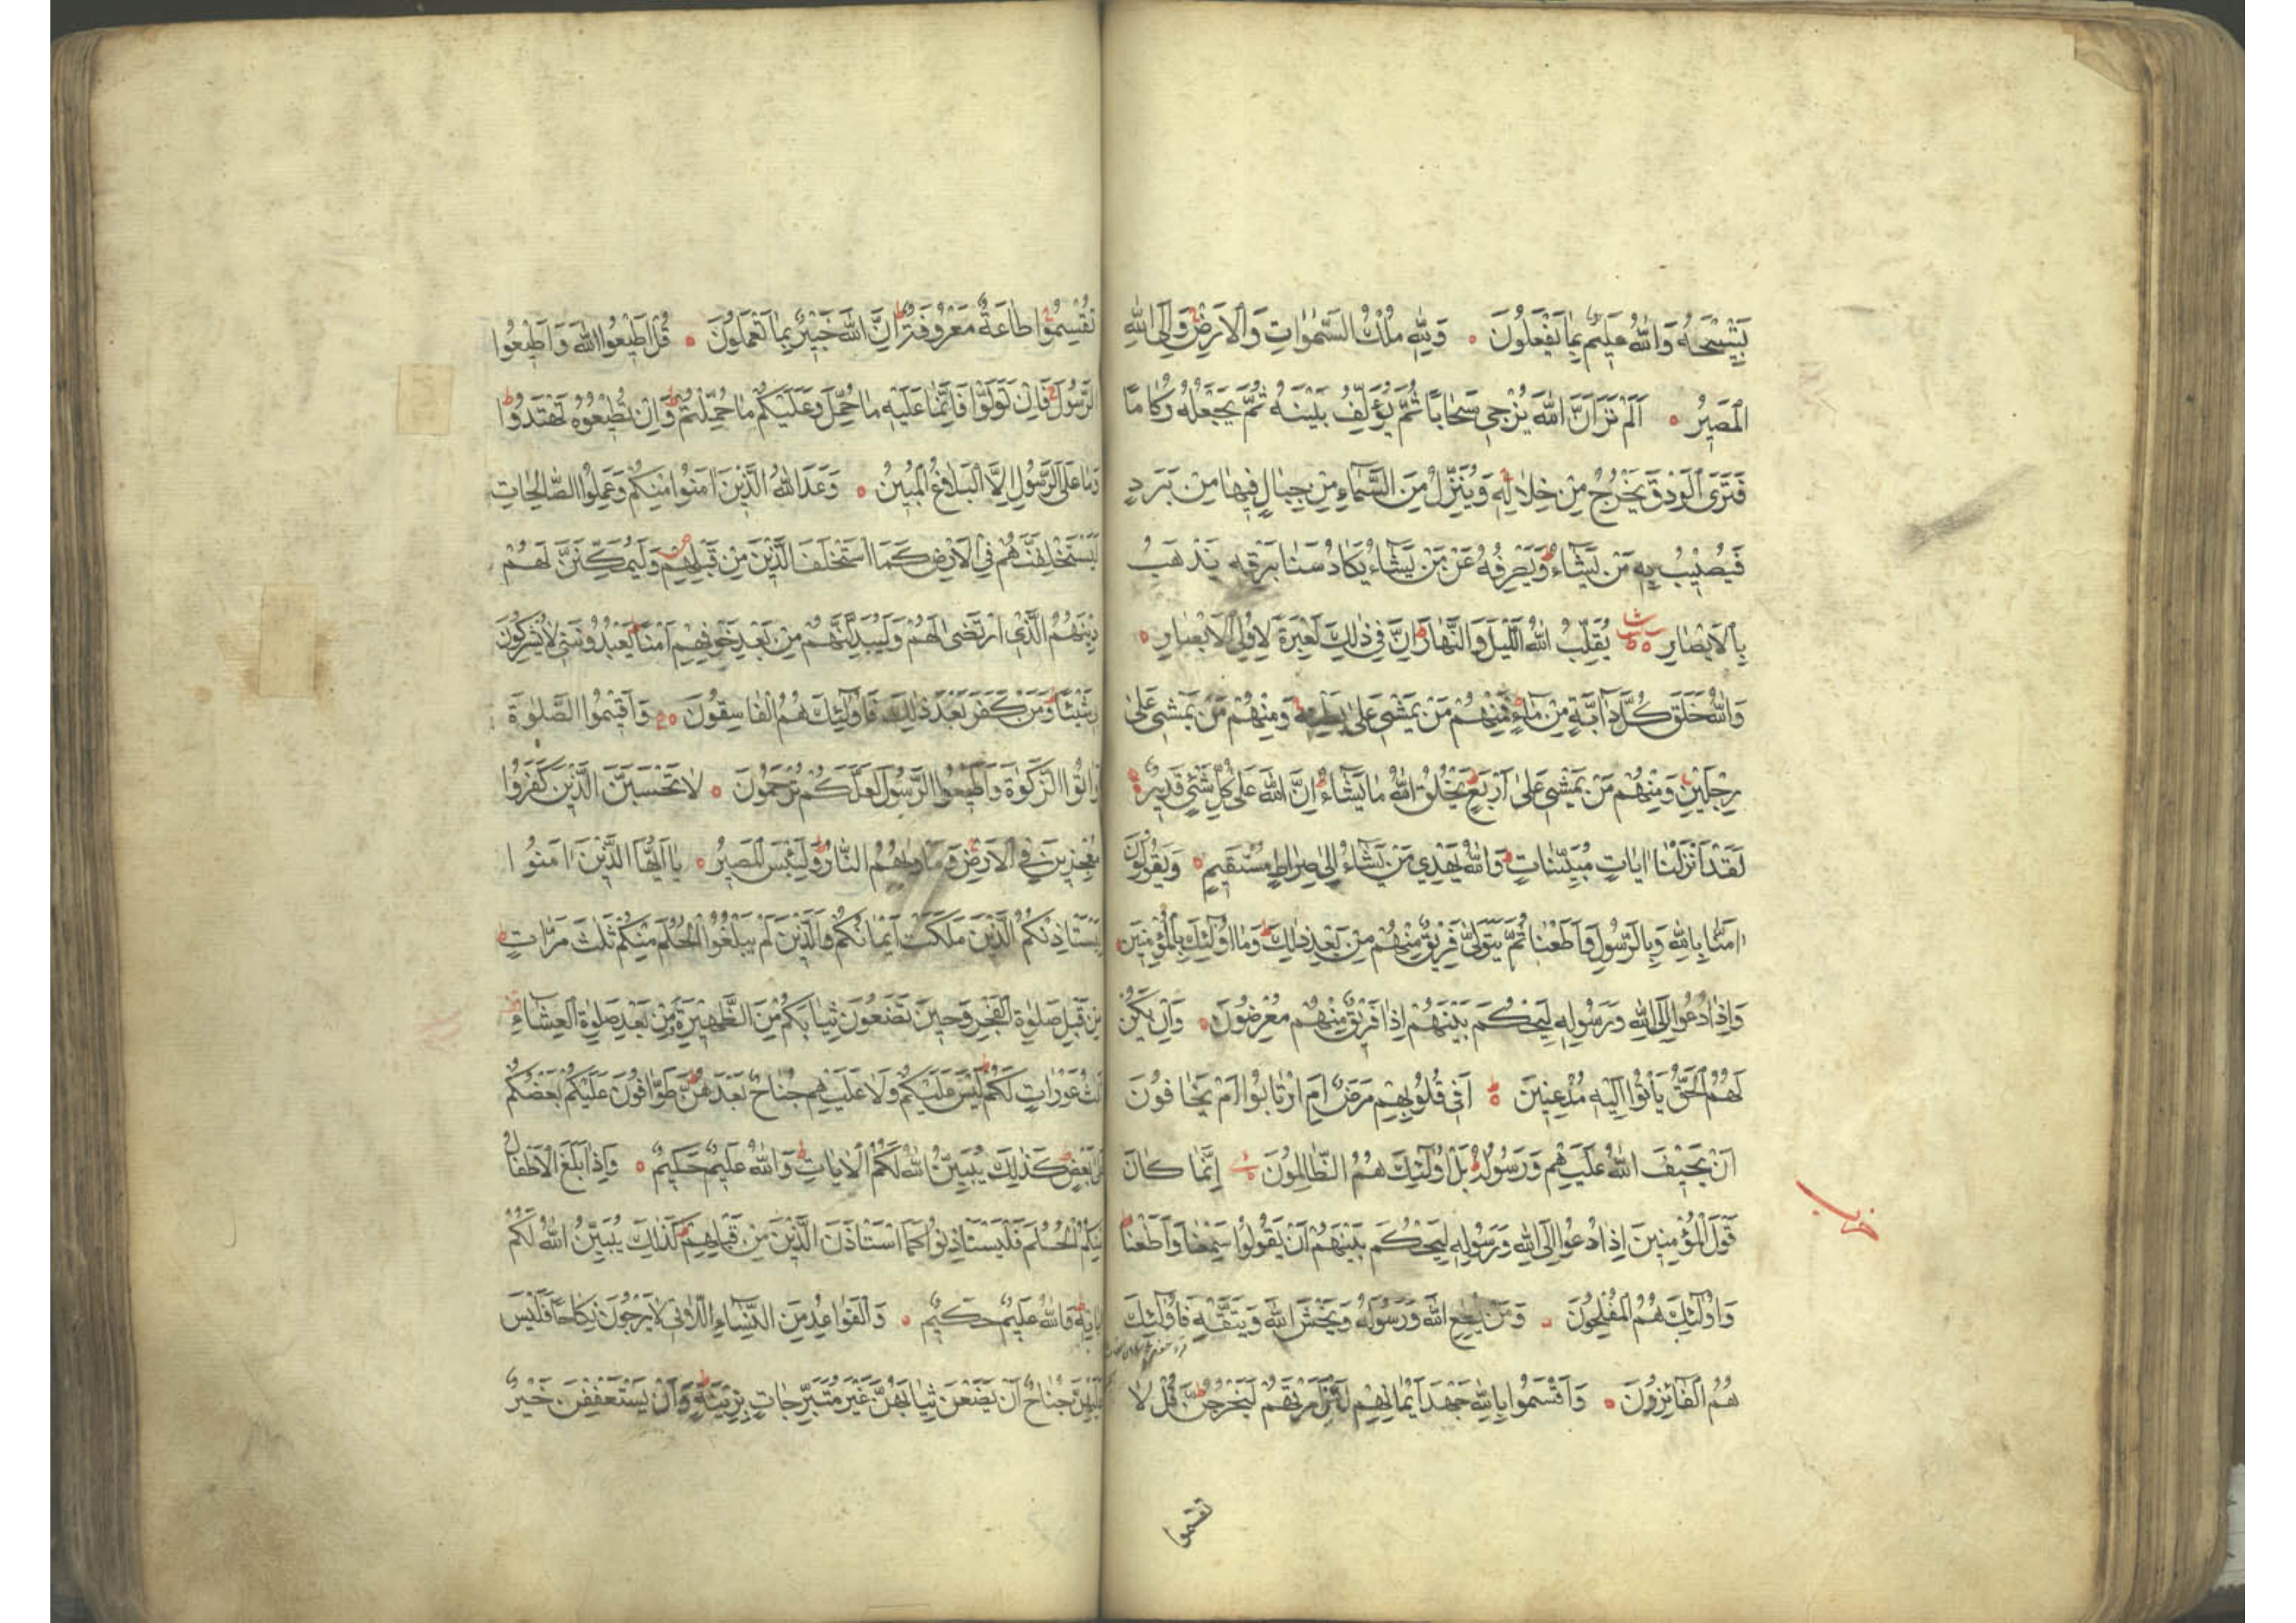 وَتَسْبِيحَهُ وَاللّٰهُ عَلِيمٌ بِمَا يَفْعَلُونَ وَلِلّٰهِ مُلْكُ السَّمٰوَاتِ وَالْاَرْضِ وَاِلَى اللّٰهِ
الْمَصِيرُ اَلَمْ تَرَ اَنَّ اللّٰهَ يُزْجِي سَحَابًا ثُمَّ يُؤَلِّفُ بَيْنَهُ ثُمَّ يَجْعَلُهُ رُكَامًا
فَتَرَى الْوَدْقَ يَخْرُجُ مِنْ خِلَالِهِ وَيُنَزِّلُ مِنَ السَّمَاءِ مِنْ جِبَالٍ فِيهَا مِنْ بَرَدٍ
فَيُصِيبُ بِهِ مَنْ يَشَاءُ وَيَصْرِفُهُ عَنْ مَنْ يَشَاءُ يَكَادُ سَنَا بَرْقِهِ يَذْهَبُ
بِالْاَبْصَارِ يُقَلِّبُ اللّٰهُ اللَّيْلَ وَالنَّهَارَ اِنَّ فِي ذٰلِكَ لَعِبْرَةً لِاُولِي الْاَبْصَارِ
وَاللّٰهُ خَلَقَ كُلَّ دَابَّةٍ مِنْ مَاءٍ فَمِنْهُمْ مَنْ يَمْشِي عَلٰى بَطْنِهِ وَمِنْهُمْ مَنْ يَمْشِي عَلٰى
رِجْلَيْنِ وَمِنْهُمْ مَنْ يَمْشِي عَلٰى اَرْبَعٍ يَخْلُقُ اللّٰهُ مَا يَشَاءُ اِنَّ اللّٰهَ عَلٰى كُلِّ شَيْءٍ قَدِيرٌ
لَقَدْ اَنْزَلْنَا اٰيَاتٍ مُبَيِّنَاتٍ وَاللّٰهُ يَهْدِي مَنْ يَشَاءُ اِلٰى صِرَاطٍ مُسْتَقِيمٍ وَيَقُولُونَ
اٰمَنَّا بِاللّٰهِ وَبِالرَّسُولِ وَاَطَعْنَا ثُمَّ يَتَوَلّٰى فَرِيقٌ مِنْهُمْ مِنْ بَعْدِ ذٰلِكَ وَمَا اُولٰئِكَ بِالْمُؤْمِنِينَ
وَاِذَا دُعُوا اِلَى اللّٰهِ وَرَسُولِهِ لِيَحْكُمَ بَيْنَهُمْ اِذَا فَرِيقٌ مِنْهُمْ مُعْرِضُونَ وَاِنْ يَكُنْ
لَهُمُ الْحَقُّ يَأْتُوا اِلَيْهِ مُذْعِنِينَ اَفِي قُلُوبِهِمْ مَرَضٌ اَمِ ارْتَابُوا اَمْ يَخَافُونَ
اَنْ يَحِيفَ اللّٰهُ عَلَيْهِمْ وَرَسُولُهُ بَلْ اُولٰئِكَ هُمُ الظَّالِمُونَ اِنَّمَا كَانَ
قَوْلَ الْمُؤْمِنِينَ اِذَا دُعُوا اِلَى اللّٰهِ وَرَسُولِهِ لِيَحْكُمَ بَيْنَهُمْ اَنْ يَقُولُوا سَمِعْنَا وَاَطَعْنَا
وَاُولٰئِكَ هُمُ الْمُفْلِحُونَ وَمَنْ يُطِعِ اللّٰهَ وَرَسُولَهُ وَيَخْشَ اللّٰهَ وَيَتَّقْهِ فَاُولٰئِكَ
هُمُ الْفَائِزُونَ وَاَقْسَمُوا بِاللّٰهِ جَهْدَ اَيْمَانِهِمْ لَئِنْ اَمَرْتَهُمْ لَيَخْرُجُنَّ قُلْ لَا
تقسموا
تُقْسِمُوا طَاعَةٌ مَعْرُوفَةٌ اِنَّ اللّٰهَ خَبِيرٌ بِمَا تَعْمَلُونَ قُلْ اَطِيعُوا اللّٰهَ وَاَطِيعُوا
الرَّسُولَ فَاِنْ تَوَلَّوْا فَاِنَّمَا عَلَيْهِ مَا حُمِّلَ وَعَلَيْكُمْ مَا حُمِّلْتُمْ وَاِنْ تُطِيعُوهُ تَهْتَدُوا
وَمَا عَلَى الرَّسُولِ اِلَّا الْبَلَاغُ الْمُبِينُ وَعَدَ اللّٰهُ الَّذِينَ اٰمَنُوا مِنْكُمْ وَعَمِلُوا الصَّالِحَاتِ
لَيَسْتَخْلِفَنَّهُمْ فِي الْاَرْضِ كَمَا اسْتَخْلَفَ الَّذِينَ مِنْ قَبْلِهِمْ وَلَيُمَكِّنَنَّ لَهُمْ
دِينَهُمُ الَّذِي ارْتَضٰى لَهُمْ وَلَيُبَدِّلَنَّهُمْ مِنْ بَعْدِ خَوْفِهِمْ اَمْنًا يَعْبُدُونَنِي لَا يُشْرِكُونَ
بِي شَيْئًا وَمَنْ كَفَرَ بَعْدَ ذٰلِكَ فَاُولٰئِكَ هُمُ الْفَاسِقُونَ وَاَقِيمُوا الصَّلٰوةَ
وَاٰتُوا الزَّكٰوةَ وَاَطِيعُوا الرَّسُولَ لَعَلَّكُمْ تُرْحَمُونَ لَا تَحْسَبَنَّ الَّذِينَ كَفَرُوا
مُعْجِزِينَ فِي الْاَرْضِ وَمَاْوٰيهُمُ النَّارُ وَلَبِئْسَ الْمَصِيرُ يَا اَيُّهَا الَّذِينَ اٰمَنُوا
لِيَسْتَاْذِنْكُمُ الَّذِينَ مَلَكَتْ اَيْمَانُكُمْ وَالَّذِينَ لَمْ يَبْلُغُوا الْحُلُمَ مِنْكُمْ ثَلٰثَ مَرَّاتٍ
مِنْ قَبْلِ صَلٰوةِ الْفَجْرِ وَحِينَ تَضَعُونَ ثِيَابَكُمْ مِنَ الظَّهِيرَةِ وَمِنْ بَعْدِ صَلٰوةِ الْعِشَاءِ
ثَلٰثُ عَوْرَاتٍ لَكُمْ لَيْسَ عَلَيْكُمْ وَلَا عَلَيْهِمْ جُنَاحٌ بَعْدَهُنَّ طَوَّافُونَ عَلَيْكُمْ بَعْضُكُمْ
عَلٰى بَعْضٍ كَذٰلِكَ يُبَيِّنُ اللّٰهُ لَكُمُ الْاٰيَاتِ وَاللّٰهُ عَلِيمٌ حَكِيمٌ وَاِذَا بَلَغَ الْاَطْفَالُ
مِنْكُمُ الْحُلُمَ فَلْيَسْتَاْذِنُوا كَمَا اسْتَاْذَنَ الَّذِينَ مِنْ قَبْلِهِمْ كَذٰلِكَ يُبَيِّنُ اللّٰهُ لَكُمْ
اٰيَاتِهِ وَاللّٰهُ عَلِيمٌ حَكِيمٌ وَالْقَوَاعِدُ مِنَ النِّسَاءِ اللَّاتِي لَا يَرْجُونَ نِكَاحًا فَلَيْسَ
عَلَيْهِنَّ جُنَاحٌ اَنْ يَضَعْنَ ثِيَابَهُنَّ غَيْرَ مُتَبَرِّجَاتٍ بِزِينَةٍ وَاَنْ يَسْتَعْفِفْنَ خَيْرٌ